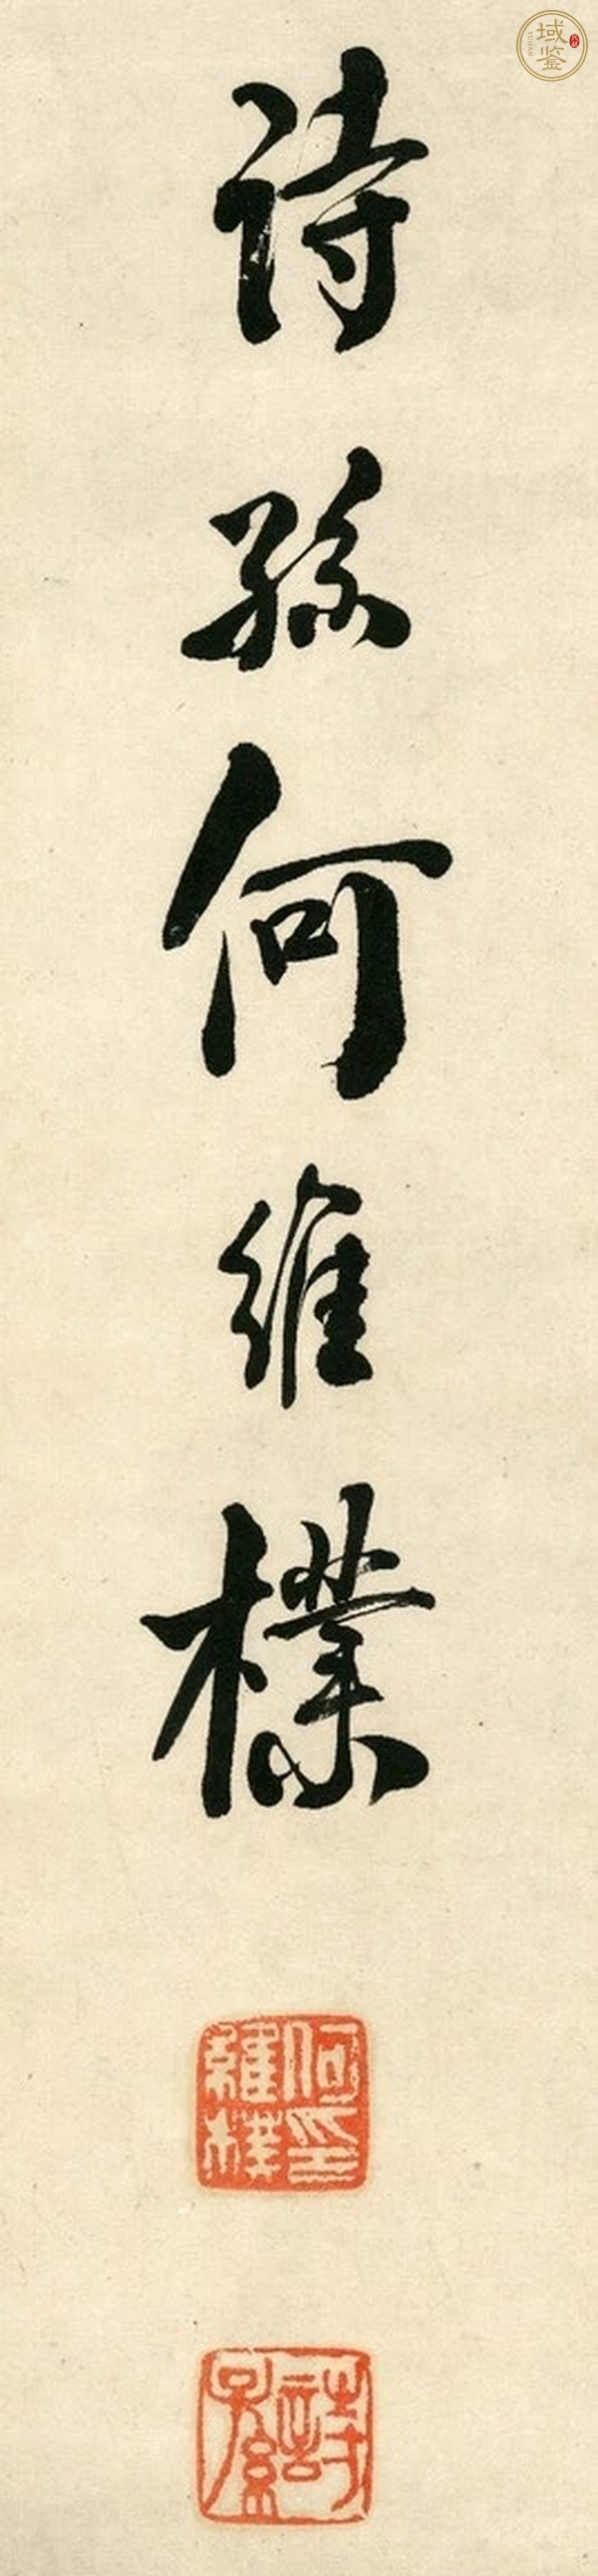 域鉴
YUJIAN
詩孫何維樸
何維樸印
詩孫